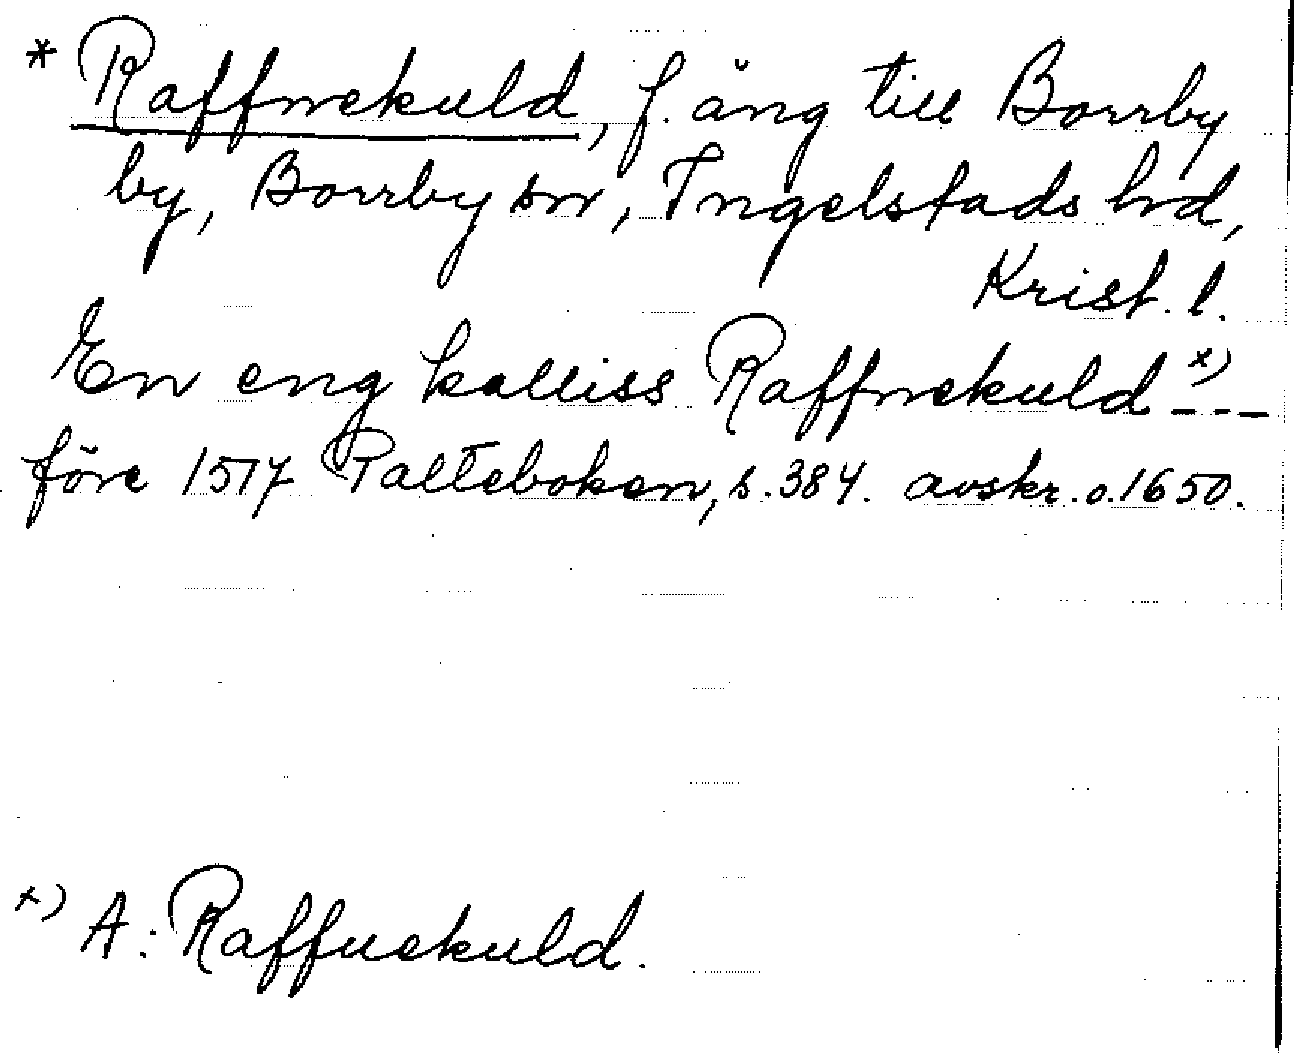 * Raffnekuld, f. äng till Borrby
by, Borrby sn, Ingelstads hd,
Krist. l.
En eng kalliss Raffnekuld x) ---
före 1517 Palteboken, s. 384. avskr. o. 1650.
x) A: Raffuekuld.